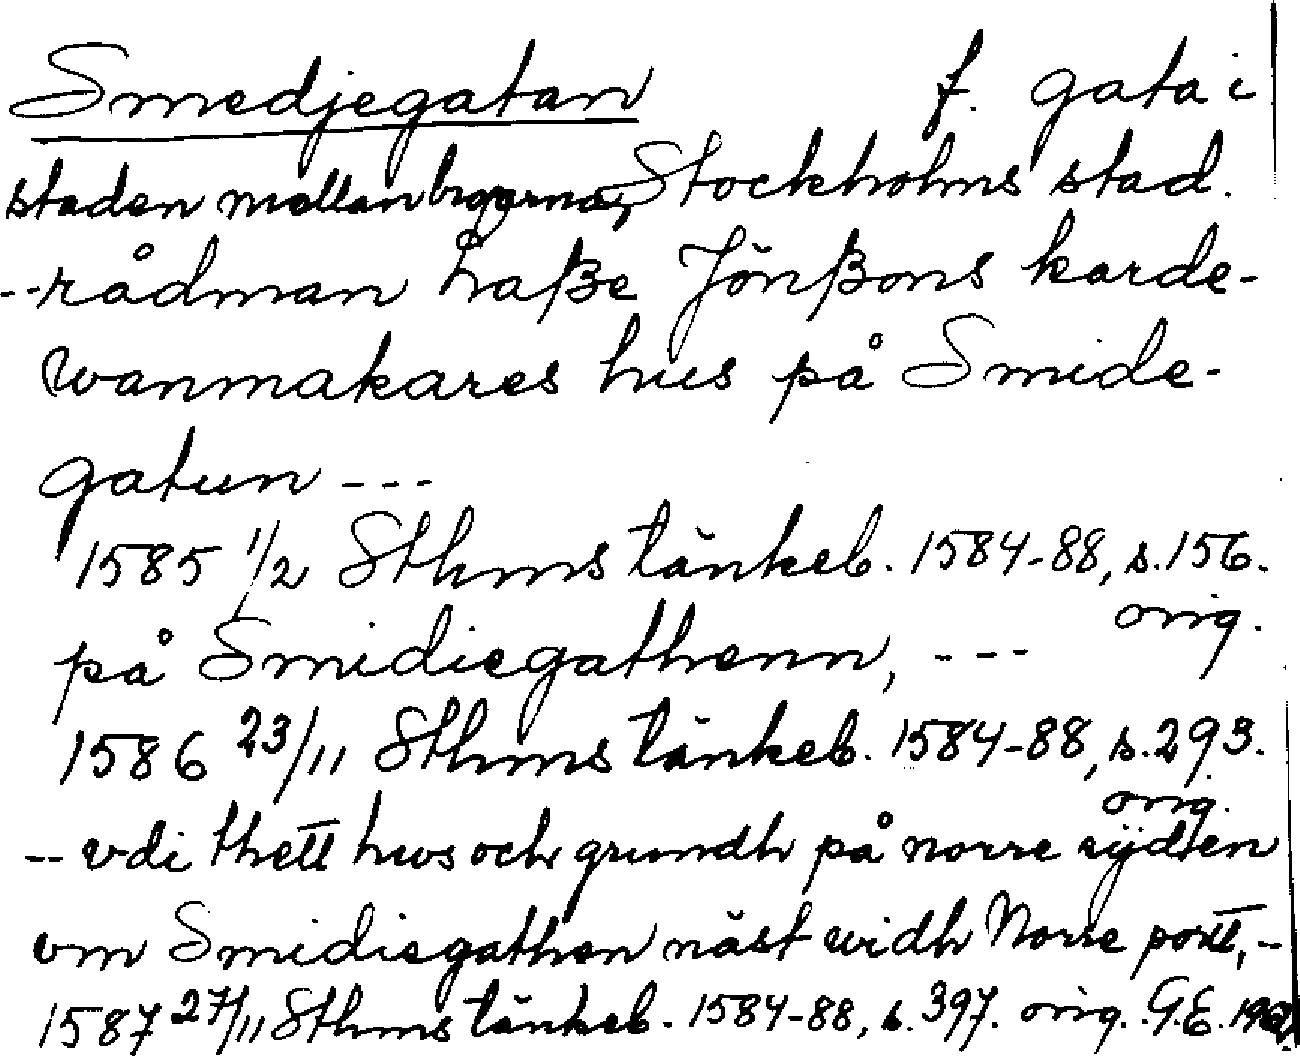 Smedjegatan f. gata i
staden mellan broarna, Stockholms stad.
--rådman haße Jönßons karde-
wanmakares hus på Smide-
gatun ---
1585 1/2 Sthms tänkeb. 1584-88, s. 156.
orig.
på Smidiegathenn, ---
1586 23/11 Sthms tänkeb. 1584-88, s. 293.
orig.
-- vdi thett hws och grundh på norre sÿdten
vm Smidiegathen näst widh Norre portt, -
1587 27/11 Sthms tänkeb. 1584-88, s. 397. orig. G.E.